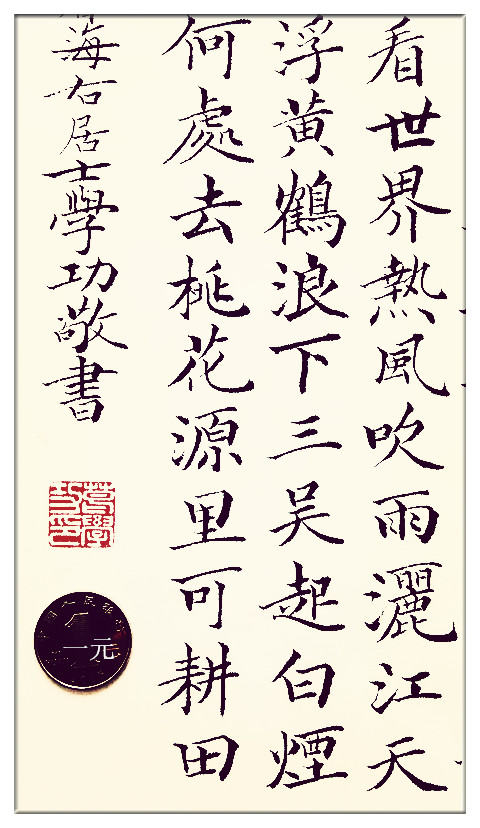 看世界熱風吹雨灑江天
浮黃鶴浪下三吳起白煙
何處去桃花源里可耕田
海右居士學功敬書
葛學功印
一元